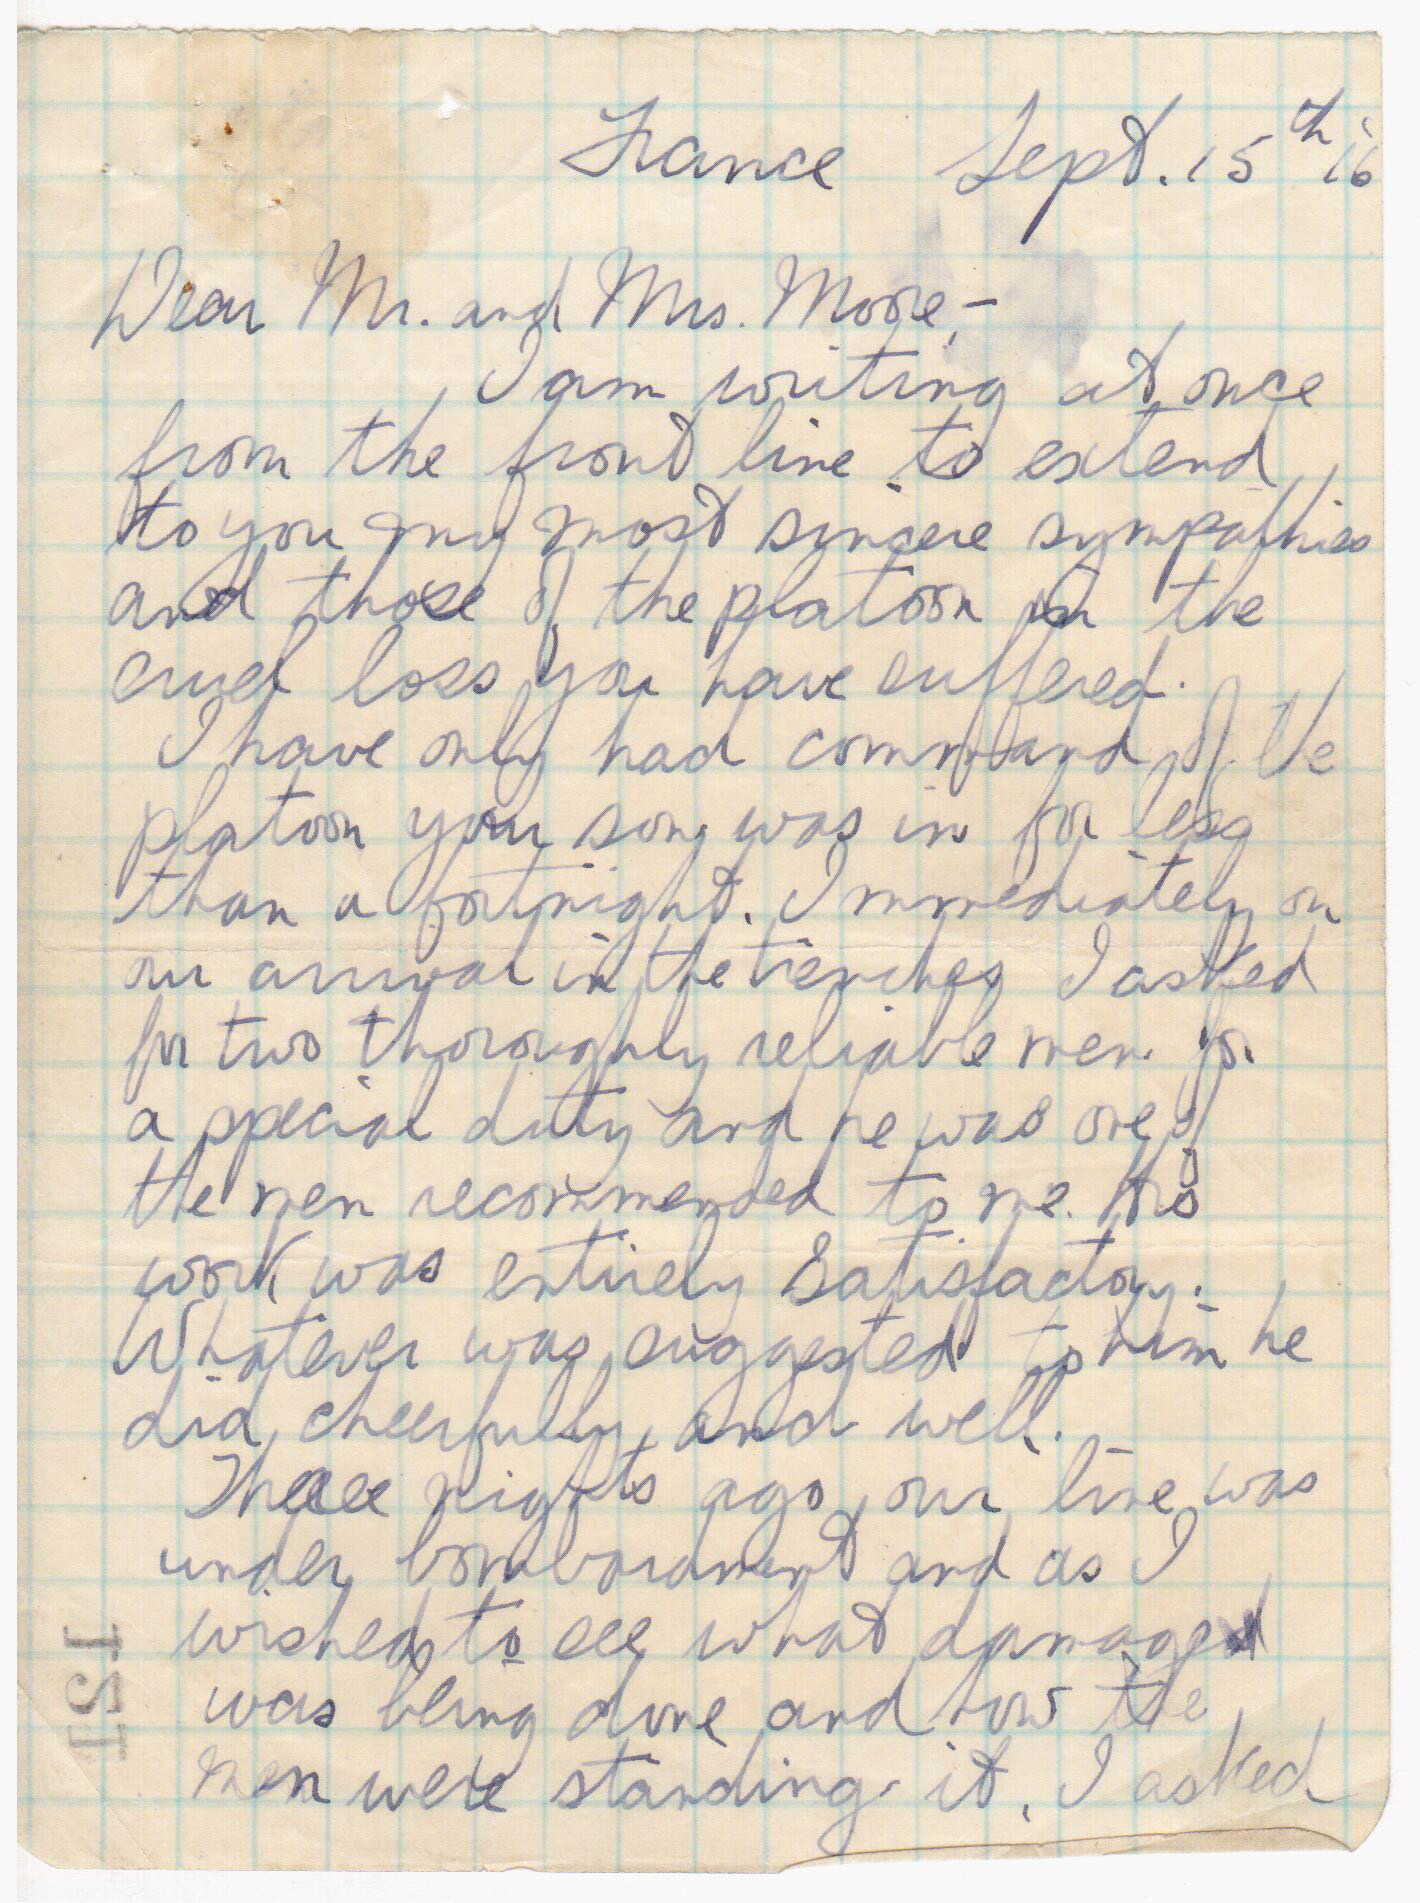 France Sept. 15th '16
Dear Mr. and Mrs. Moore,-
I am writing at once
from the front line to extend
to you my most sincere sympathies
and those of the platoon in the
cruel loss you have suffered.
I have only had command of the
platoon your son was in for less
than a fortnight. Immediately on
our arrival in the trenches I asked
for two thoroughly reliable men for
a special duty and he was one of
the men recommended to me. His
work was entirely satisfactory.
Whatever was suggested to him he
did cheerfully and well.
Three nights ago our line was
under bombardment and as I
wished to see what damaged
was being done and how the
men were standing it, I asked
121